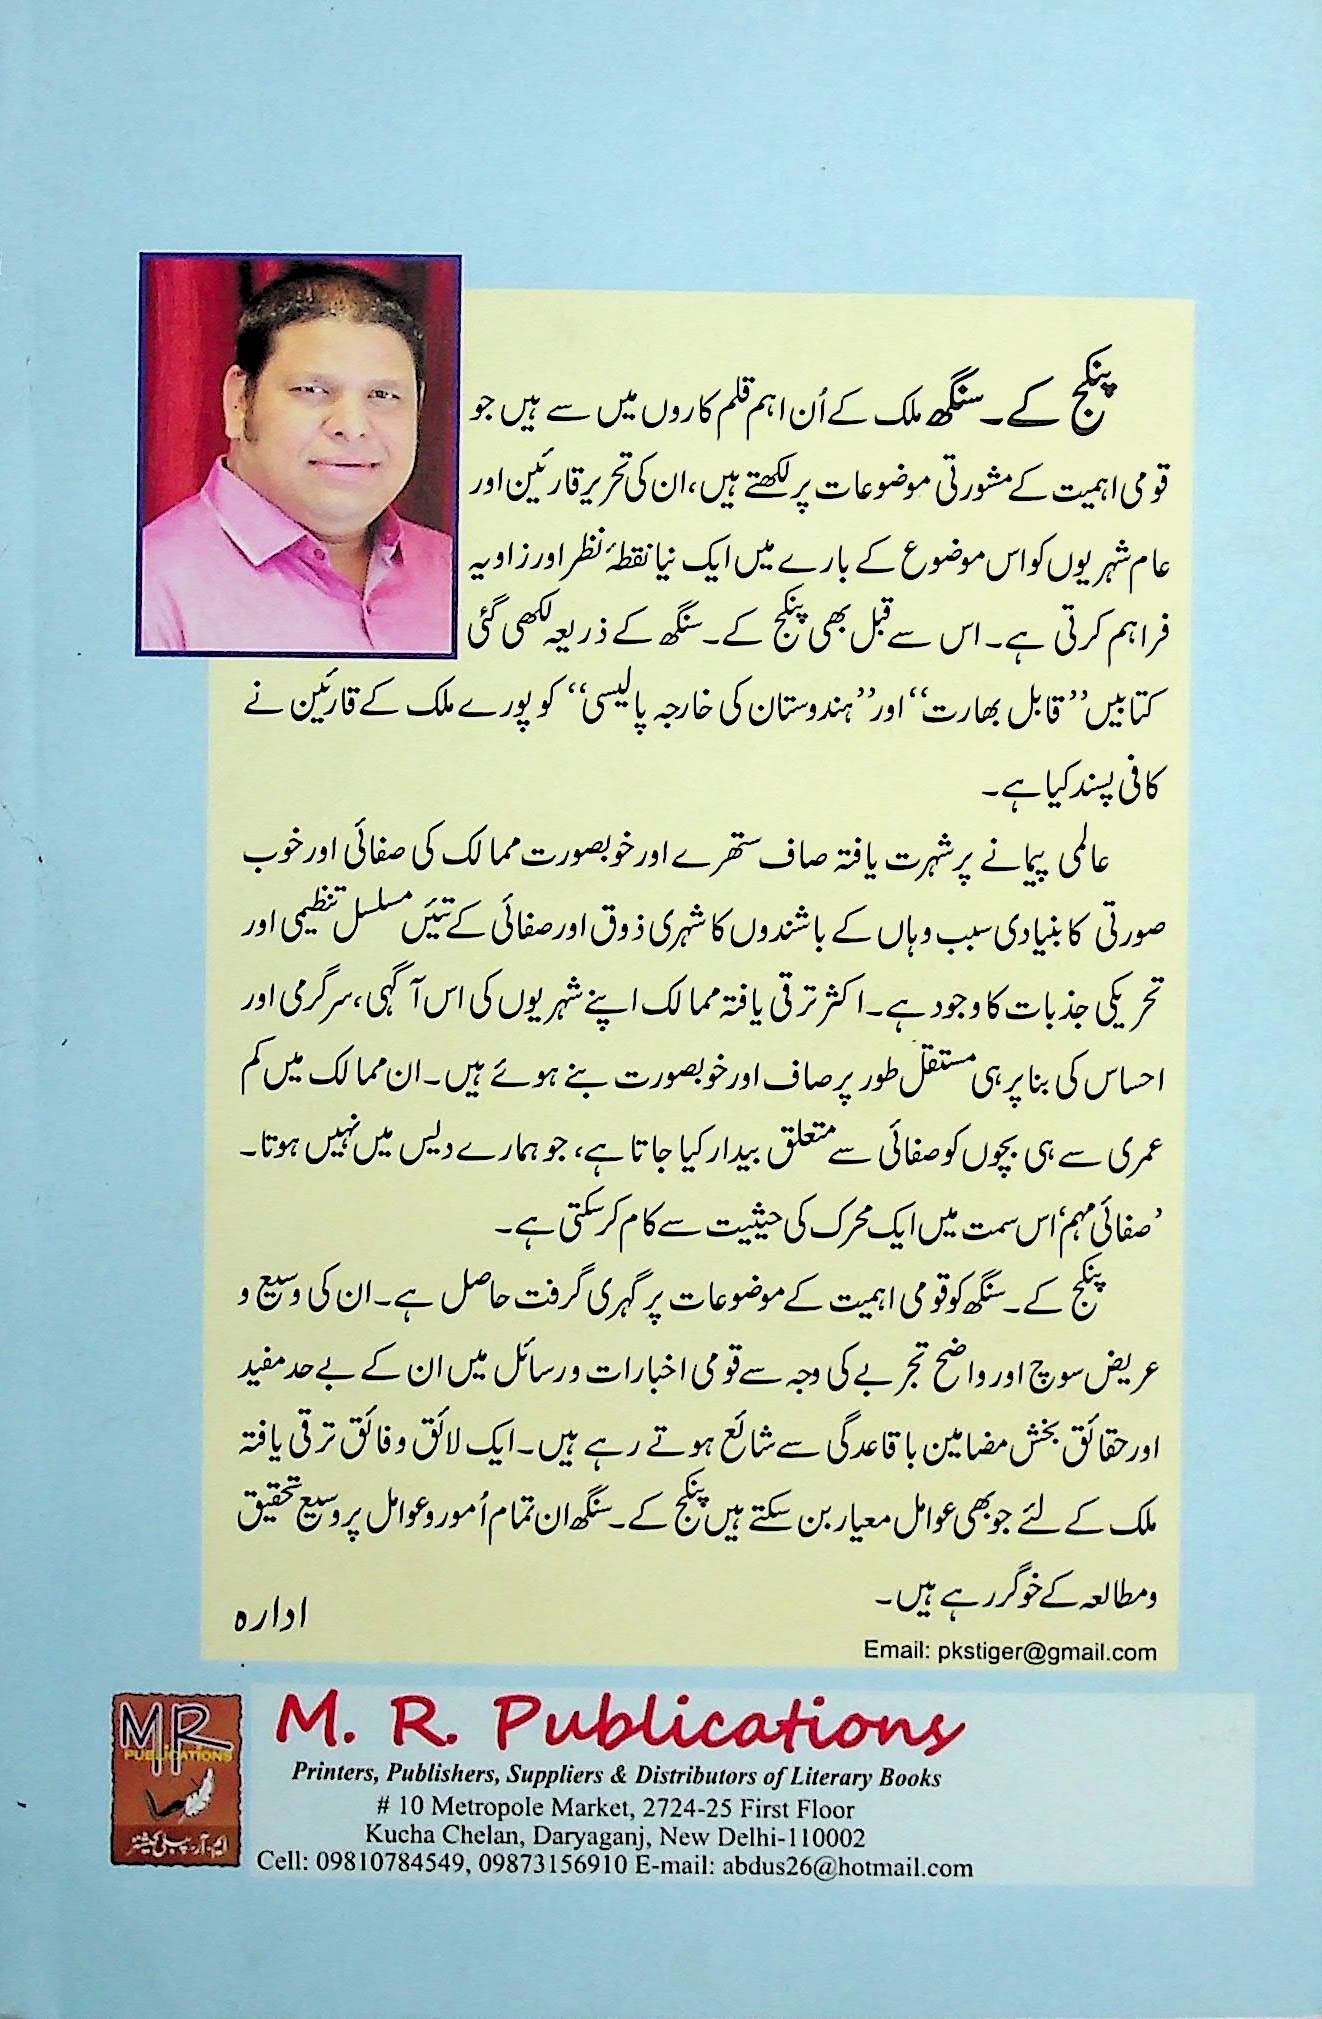 پنکج کے۔ سنگھ ملک کے اُن اہم قلم کاروں میں سے ہیں جو
قومی اہمیت کے مشورتی موضوعات پر لکھتے ہیں، ان کی تحریر قارئین اور
عام شہریوں کو اس موضوع کے بارے میں ایک نیا نقطۂ نظر اور زاویہ
فراہم کرتی ہے۔ اس سے قبل بھی پنکج کے۔ سنگھ کے ذریعہ لکھی گئی
کتابیں ”قابل بھارت“ اور ”ہندوستان کی خارجہ پالیسی“ کو پورے ملک کے قارئین نے
کافی پسند کیا ہے۔
عالمی پیمانے پر شہرت یافتہ صاف ستھرے اور خوبصورت ممالک کی صفائی اور خوب
صورتی کا بنیادی سبب وہاں کے باشندوں کا شہری ذوق اور صفائی کے تئیں مسلسل تنظیمی اور
تحریکی جذبات کا وجود ہے۔ اکثر ترقی یافتہ ممالک اپنے شہریوں کی اس آگہی، سرگرمی اور
احساس کی بنا پر ہی مستقل طور پر صاف اور خوبصورت بنے ہوئے ہیں۔ ان ممالک میں کم
عمری سے ہی بچوں کو صفائی سے متعلق بیدار کیا جاتا ہے، جو ہمارے دیس میں نہیں ہوتا۔
’صفائی مہم‘ اس سمت میں ایک محرک کی حیثیت سے کام کر سکتی ہے۔
پنکج کے۔ سنگھ کو قومی اہمیت کے موضوعات پر گہری گرفت حاصل ہے۔ ان کی وسیع و
عریض سوچ اور واضح تجربے کی وجہ سے قومی اخبارات و رسائل میں ان کے بے حد مفید
اور حقائق بخش مضامین باقاعدگی سے شائع ہوتے رہے ہیں۔ ایک لائق و فائق ترقی یافتہ
ملک کے لئے جو بھی عوامل معیار بن سکتے ہیں پنکج کے۔ سنگھ ان تمام اُمور و عوامل پر وسیع تحقیق
و مطالعہ کے خوگر رہے ہیں۔
ادارہ
Email: pkstiger@gmail.com
MR
PUBLICATIONS
ایم۔ آر۔ پبلی کیشنز
M. R. Publications
Printers, Publishers, Suppliers & Distributors of Literary Books
# 10 Metropole Market, 2724-25 First Floor
Kucha Chelan, Daryaganj, New Delhi-110002
Cell: 09810784549, 09873156910 E-mail: abdus26@hotmail.com